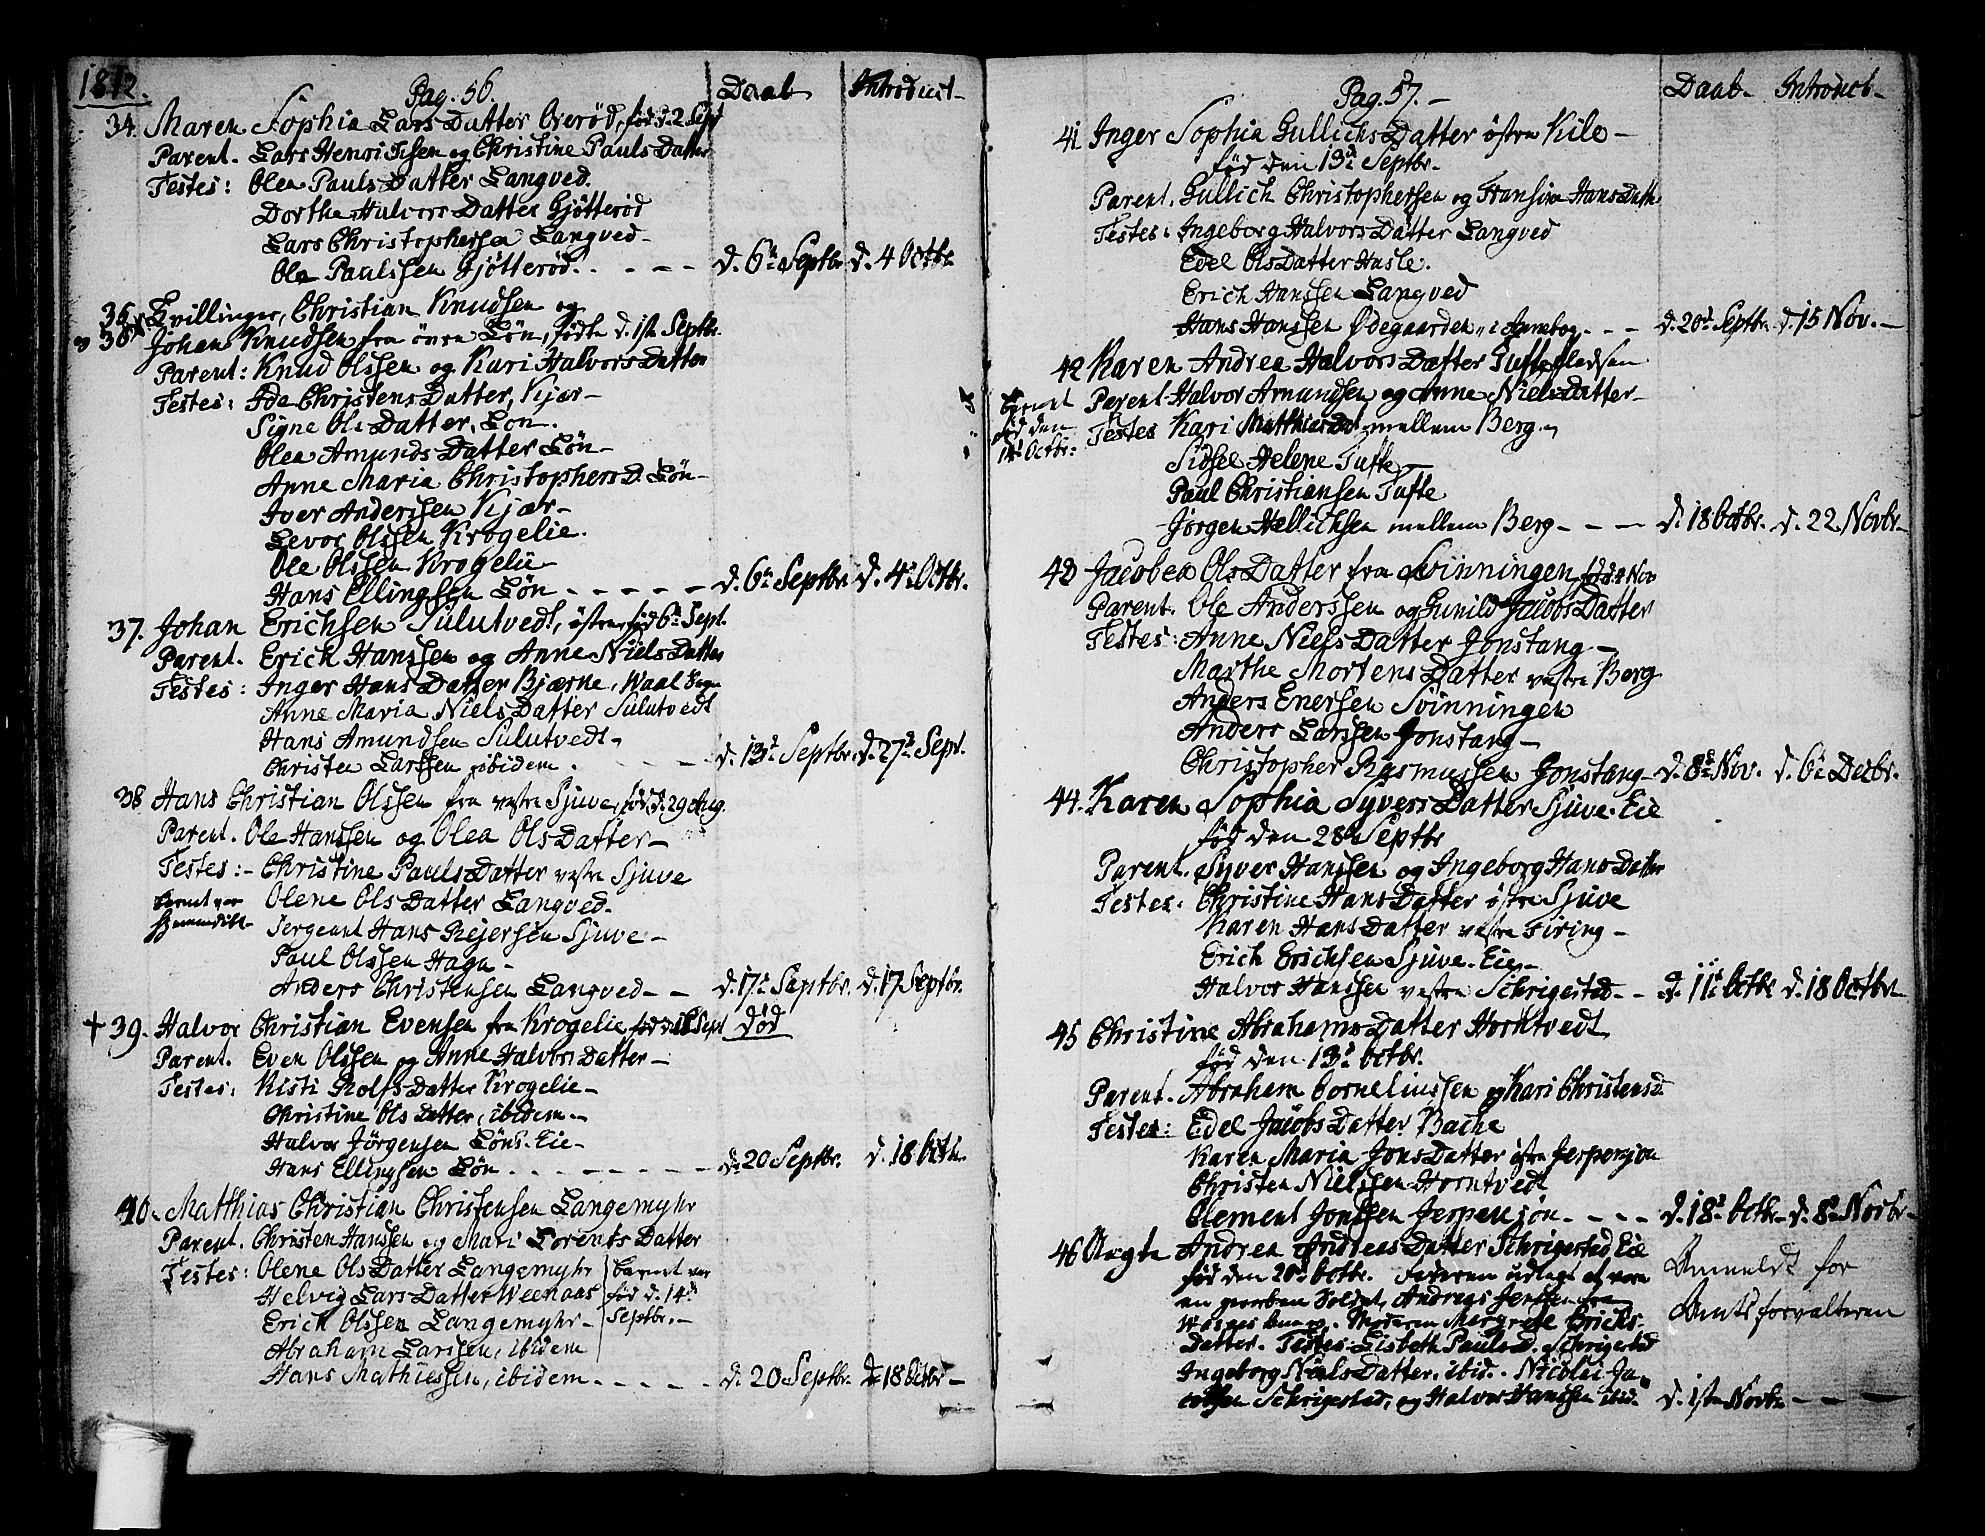 1812.
Pag. 56
Daab
Introduct-
34. Maren Sophia Lars Datter Overød, fød d. 2 Sept
Parent. Lars Henrichsen og Christine Pauls Datter
Testes: Olea Pauls Datter Langved.
Dorthe Halvors Datter Gjøtterød
Lars Christophersen Langved-
Ole Paulssen Gjøtterød. - - - d. 6te Septbr. d. 4 Octbr.
36. Tvillinger, Christian Knudsen og
Johan Knudsen fra øvre Løn, fødte d. 1ste Septbr.
Parent: Knud Olssen og Kari Halvors Datter
Testes: Ide Christens Datter, Kjær-
Signe Ols Datter, Løn.
Olea Amunds Datter Løn-
Anne Maria Christophers D. Løn-
Iver Anderssen Kjær-
Levor Olssen Krogelie.
Ole Olssen Krogelie
Hans Ellingsen Løn - - - - - d. 6te Septbr. d. 4de Octbr.
37. Johan Erichsen Sulutvedt, østre, fød 6te Sept.
Parent. Erich Hanssen og Anne Niels Datter
Testes: Inger Hans Datter Bjærne, Waal Sogn
Anne Maria Niels Datter Sulutvedt
Hans Amundsen Sulutvedt-
Christen Larssen ibidem. - - - d. 13de Septbr. d. 27de Sept.
38 Hans Christian Olssen fra vestre Sjuve, fød d. 29 Aug.
Parent. Ole Hanssen og Olea Ols Datter-
Testes:- Christine Pauls Datter vestre Sjuve
Barnet var Olene Ols Datter Langved.
hjemmedøbt- Sergeant Hans Rejersen Sjuve-
Paul Olssen Haga-
Anders Christensen Langved- - d. 17de Septbr. d. 17 Septbr.
† 39. Halvor Christian Evensen fra Krogelie fød d. Sept død
Parent. Even Olssen og Anne Halvors Datter-
Testes: Kisti Rolfs Datter Krogelie-
Christine Ols Datter, ibidem.-
Halvor Jørgensen Løns-Eie-
Hans Ellingsen Løn - - - - - d. 20 Septbr. d. 18 Octbr.
40. Matthias Christian Christensen Langemyhr
Parent. Christen Hanssen og Mari Lorents Datter
Testes: Olene Ols Datter Langemyhr Barnet var
Helvig Lars Datter Weenaas fød d. 14de
Erich Olssen Langemyhr- Septbr.-
Abraham Larssen, ibidem
Hans Mathiessen, ibidem. - - - d. 20 Septbr. d. 18 Octbr-
Pag. 57.-
Daab- Introduct-
41 Inger Sophia Gullichs Datter østre Kile-
fød den 13de Septbr.
Parent. Gullich Christophersen og Hansine Hans Datter
Testes: Ingeborg Halvors Datter Langved
Edel Ols Datter Hasle.
Erich Hanssen Langved
Hans Hanssen Ødegaarden - - - d. 20de Septbr. d. 15 Nov.-
42 Karen Andrea Halvors Datter Tufte Pladsen
Barnet Parent Halvor Amundsen og Anne Niels Datter-
fød den Testes Kari Matthias Dat. mellem Berg-
14de Octbr: Sidsel Helene Tufte-
Paul Christiansen Tufte
Jørgen Hellichsen mellem Berg- - - d. 18 Octbr. d. 22. Novbr-
43 Jacobea Ols Datter fra Svinningen fød d. 4 Nov
Parent. Ole Anderssen og Gunild Jacobs Datter
Testes: Anne Niels Datter Jonstang-
Marthe Mortens Datter vestre Berg
Anders Enersen Svinningen
Anders Larssen Jonstang-
Christopher Rasmussen Jonstang- d. 8de Nov. d. 6te Decbr.
44. Karen Sophia Syvers Datter Sjuve-Eie
fød den 28de Septbr
Parent. Syver Hanssen og Ingeborg Hans Datter
Testes: Christine Hans Datter østre Sjuve
Karen Hans Datter vestre Firing-
Erich Erichsen Sjuve-Eie-
Halvor Hanssen vestre Schrigestad- - d. 11te Octbr d. 18 Octbr.
45 Christine Abrahams Datter Horntvedt
fød den 13de Octbr.
Parent. Abraham Corneliussen og Kari Christensd.
Testes: Edel Jacobs Datter Bache
Karen Maria Jons Datter østre Jerpensjøn
Christen Nielssen Horntvedt
Clement Jonssen Jerpensjøn. - - - d. 18de Octbr. d. 8de Novbr-
46 Uægte Andrea Andreas Datter Schrigestad Eie
fød den 20de Octbr. Faderen udlagt at være Anmeldt for
en gevorben Soldat, Andreas Jensen fra Amtsforvalteren
. Moderen Margrete Erichs-
Datter. Testes: Lisbeth Pauls D. Schrigestad
Ingeborg Niels Datter, ibid.- Nicolai Ja-
cobsen Schrigestad, og Halvor Hanssen ibid. d. 1ste Novbr. - - -